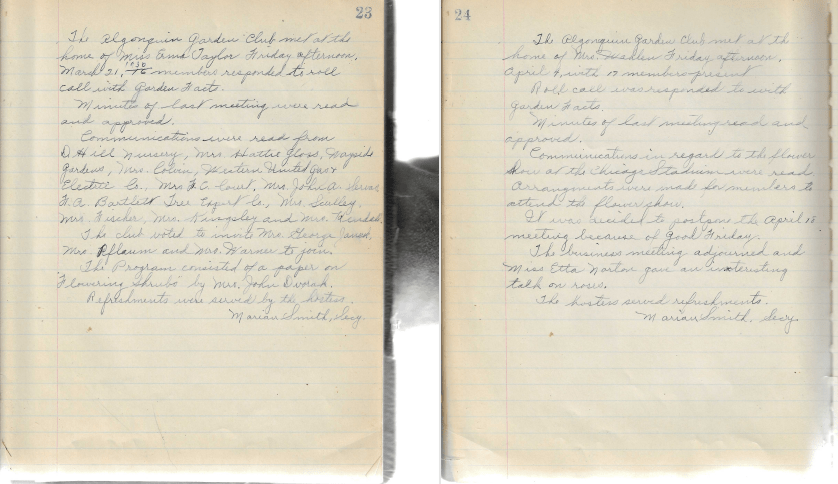 23
The Algonquin Garden Club met at the
home of Miss Erma Taylor Friday afternoon,
March 21, 1930 16 members responded to roll
call with Garden Facts.
Minutes of last meeting were read
and approved.
Communications were read from
D. Hill Nursery, Mrs. Hattie Gloss, Wayside
Gardens, Mrs. Colvin, Western United Gas &
Electric Co., Mrs. John
F.A. Bartlett Tree Expert Co., Mrs.
Mrs. Fischer, Mrs. Kingsley and Mrs.
The club voted to invite Mrs. George
Mrs. Pflaum and Mrs. Warner to join.
The Program consisted of a paper on
"Flowering Shrubs" by Mrs. John Dvorak.
Refreshments were served by the hostess.
Marian Smith, Secy.
24
The Algonquin Garden Club met at the
home of Mrs. Friday afternoon,
April 4, with members present
Roll call was responded to with
Garden Facts.
Minutes of last meeting read and
approved.
Communications in regard to the flower
show at the Chicago Stadium were read.
Arrangments were made for members to
attend the flower show.
It was decided to postpone the April 18
meeting because of Good Friday.
The business meeting adjourned and
Miss Etta Norton gave an interesting
talk on roses.
The hostess served refreshments.
Marian Smith, Secy.